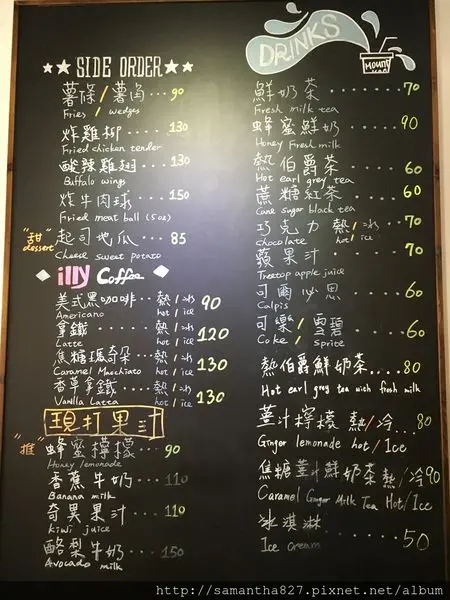 ★★ SIDE ORDER ★★
薯條 / 薯角 ... 90
Fries / wedges
炸雞柳 .... 130
Fried chicken tender
酸辣雞翅 ... 130
Buffalo wings
炸牛肉球 ... 150
Fried meat ball (5oz)
"甜" 起司地瓜 ... 85
dessert Cheese sweet potato
illy Coffee
美式黑咖啡 .. 熱 / 冰 90
Americano hot / ice
拿鐵 .... 熱 / 冰 120
Latte hot / ice
焦糖瑪奇朵 .. 熱 / 冰 130
Caramel Macchiato hot / ice
香草拿鐵 ... 熱 / 冰 130
Vanilla Latta hot / ice
現打果汁
"推" 蜂蜜檸檬 .... 90
Honey lemonade
香蕉牛奶 .... 110
Banana milk
奇異果汁 .... 110
kiwi juice
酪梨牛奶 .... 150
Avocado milk
DRINKS
鮮奶茶 ........ 70
Fresh milk tea
蜂蜜鮮奶 ..... 90
Honey Fresh milk
熱伯爵茶 .... 60
Hot earl grey tea
蔗糖紅茶 .... 60
Cane sugar black tea
巧克力 熱 / 冰 .. 70
chocolate hot / ice
蘋果汁 ...... 70
Treetop apple juice
可爾必思 .... 60
Calpis
可樂 / 雪碧 ... 60
Coke / Sprite
熱伯爵鮮奶茶 .... 80
Hot earl grey tea with fresh milk
薑汁檸檬 熱/冷 .. 80
Ginger lemonade hot / Ice
焦糖薑汁鮮奶茶 熱/冷 90
Caramel Ginger Milk Tea Hot/Ice
冰淇淋 ........ 50
Ice cream
http://samantha827.pixnet.net/album